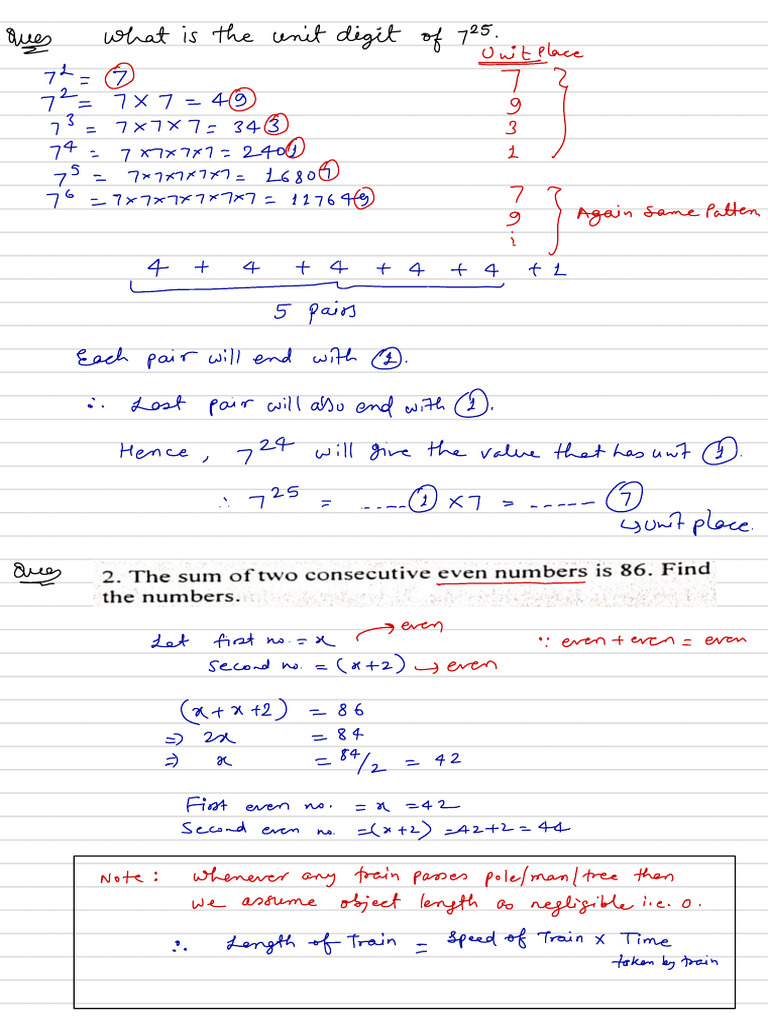 Ques What is the unit digit of 7²⁵.
Unit Place
7¹ = 7
7
7² = 7 × 7 = 49
9
7³ = 7 × 7 × 7 = 343
3
7⁴ = 7 × 7 × 7 × 7 = 2401
1
7⁵ = 7 × 7 × 7 × 7 × 7 = 16807
7
7⁶ = 7 × 7 × 7 × 7 × 7 × 7 = 117649
9 Again Same Patten
⋮
4 + 4 + 4 + 4 + 4 + 1
5 pairs
Each pair will end with 1.
∴ Last pair will also end with 1.
Hence, 7²⁴ will give the value that has unit 1.
∴ 7²⁵ = ....1 × 7 = ----- 7
↳ unit place.
Ques
2. The sum of two consecutive even numbers is 86. Find
the numbers.
Let first no. = x → even
∵ even + even = even
Second no. = (x+2) → even
(x + x + 2) = 86
⇒ 2x = 84
⇒ x = 84/2 = 42
First even no. = x = 42
Second even no. = (x+2) = 42+2 = 44
Note : Whenever any train passes pole/man/tree then
we assume object length as negligible i.e. 0.
∴ Length of Train = Speed of Train × Time
taken by train